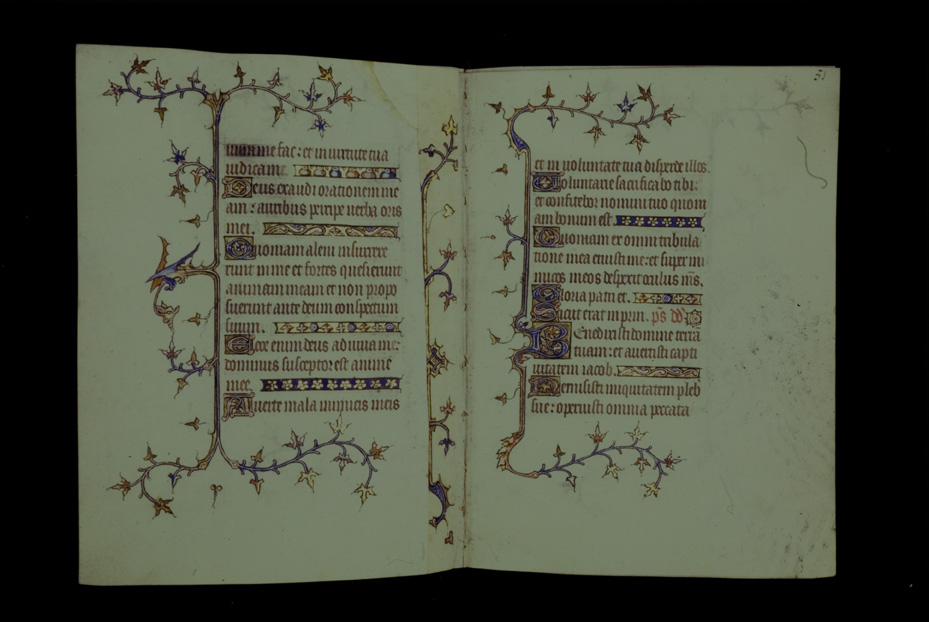 uum me fac: et in uirtute tua
iudica me.
Deus exaudi orationem me
am: auribus percipe uerba oris
mei.
Quoniam alieni insurrexe
runt in me et fortes quesierunt
animam meam et non propo
suerunt ante deum conspectum
suum.
Ecce enim deus adiuuat me:
dominus susceptor est anime
mee.
Auerte mala inimicis meis
et in ueritate tua disperde illos.
Uoluntarie sacrificabo tibi:
et confitebor nomini tuo quoni
am bonum est.
Quoniam ex omni tribula
tione mea eripuisti me: et super ini
micos meos despexit oculus m̄s.
Gloria patri et.
Sicut erat in prin. ps dd
Benedixisti domine terrā
tuam: et auertisti capti
uitatem iacob.
Remisisti iniquitatem pleb
sue: operuisti omnia peccata